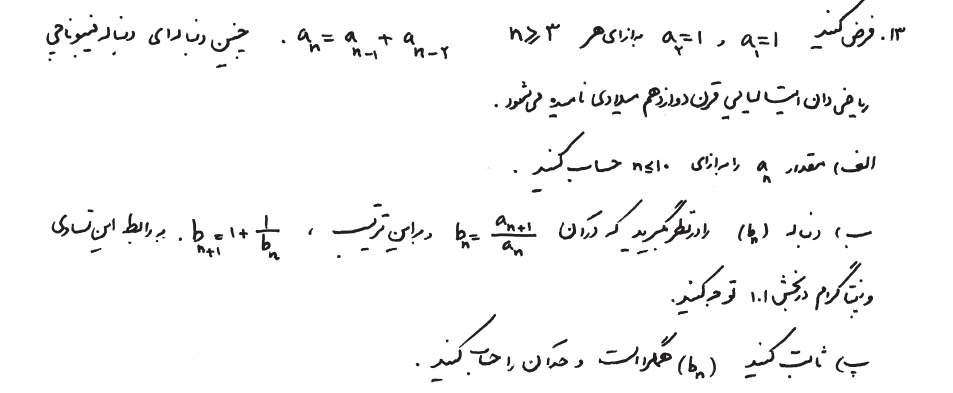 ۱۳. فرض کنید a₁=۱ و a₂=۱ بازای هر n≥۳ aₙ=aₙ₋₁+aₙ₋₂. چنین دنباله‌ای دنباله فیبوناچی
ریاضی دان ایتالیایی قرن دوازدهم میلادی نامیده می‌شود.
الف) مقدار aₙ را بازای n≤۱۰ حساب کنید.
ب) دنباله (bₙ) را در نظر بگیرید که در آن bₙ=aₙ₊₁/aₙ و به این ترتیب، bₙ₊₁=۱+۱/bₙ. به رابطه این تساوی
و پنتاگرام در بخش ۱.۱ توجه کنید.
پ) ثابت کنید (bₙ) همگراست و حد آن را حساب کنید.